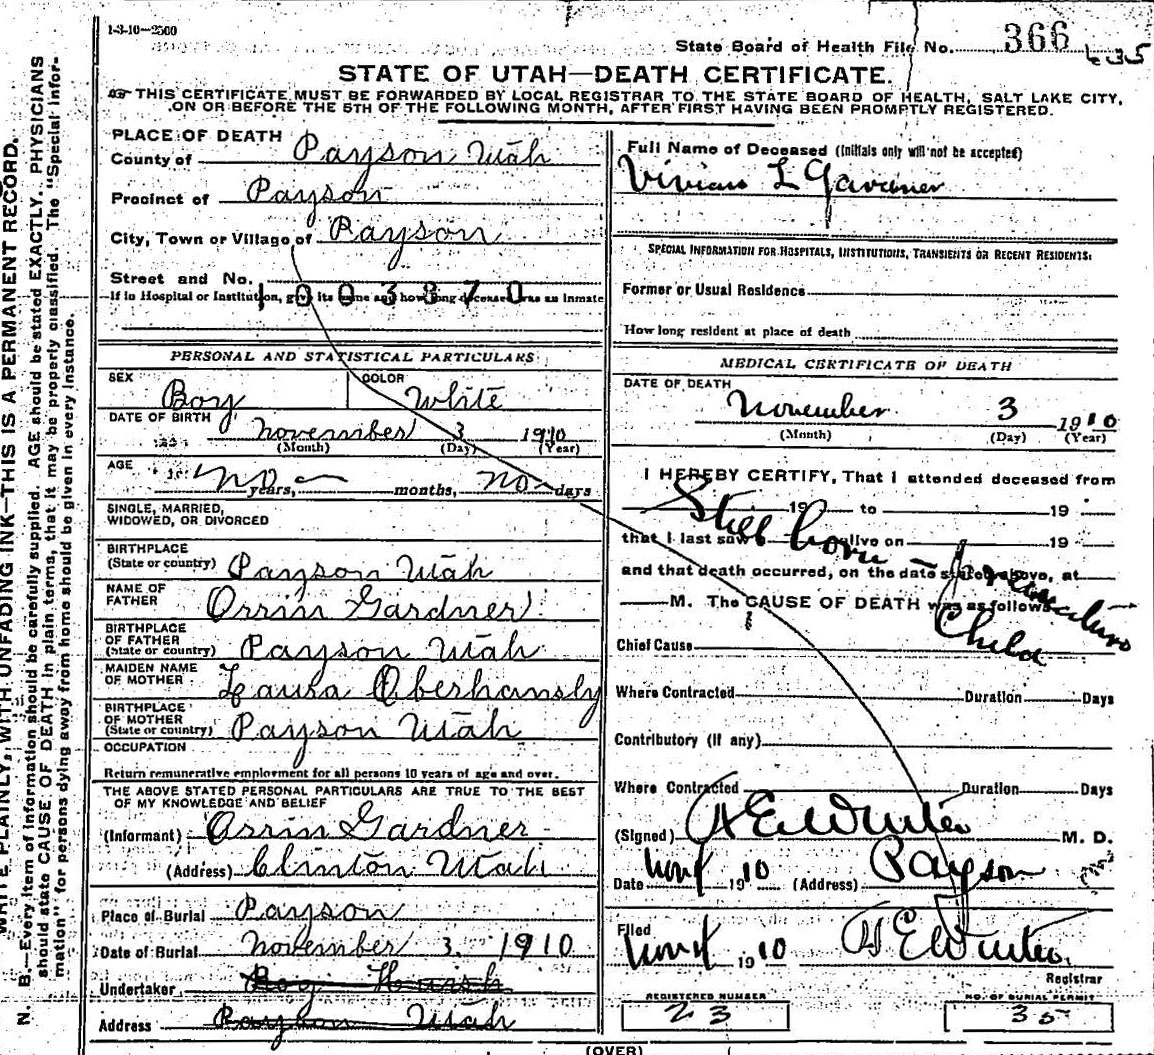 1-3-10—2500
State Board of Health File No. 366 635
STATE OF UTAH—DEATH CERTIFICATE.
THIS CERTIFICATE MUST BE FORWARDED BY LOCAL REGISTRAR TO THE STATE BOARD OF HEALTH, SALT LAKE CITY,
ON OR BEFORE THE 5TH OF THE FOLLOWING MONTH, AFTER FIRST HAVING BEEN PROMPTLY REGISTERED.
N. B.—Every item of information should be carefully supplied. AGE should be stated EXACTLY. PHYSICIANS
should state CAUSE OF DEATH in plain terms, that it may be properly classified. The "Special Infor-
mation" for persons dying away from home should be given in every instance.
WRITE PLAINLY, WITH UNFADING INK—THIS IS A PERMANENT RECORD.
PLACE OF DEATH
County of Payson Utah
Precinct of Payson
City, Town or Village of Payson
Street and No.
1003870
If in Hospital or Institution, give its name and how long deceased was an inmate
PERSONAL AND STATISTICAL PARTICULARS
SEX Boy
COLOR White
DATE OF BIRTH November 3 1910
(Month) (Day) (Year)
AGE no years, months, no days
SINGLE, MARRIED,
WIDOWED, OR DIVORCED
BIRTHPLACE
(State or country) Payson Utah
NAME OF
FATHER Orrin Gardner
BIRTHPLACE
OF FATHER
(State or country) Payson Utah
MAIDEN NAME
OF MOTHER Laura Oberhansly
BIRTHPLACE
OF MOTHER
(State or country) Payson Utah
OCCUPATION
Return remunerative employment for all persons 10 years of age and over.
THE ABOVE STATED PERSONAL PARTICULARS ARE TRUE TO THE BEST
OF MY KNOWLEDGE AND BELIEF
(Informant) Orrin Gardner
(Address) Clinton Utah
Place of Burial Payson
Date of Burial November 3 1910
Undertaker
Address Payson Utah
Full Name of Deceased (Initials only will not be accepted)
Vivian L Gardner
SPECIAL INFORMATION FOR HOSPITALS, INSTITUTIONS, TRANSIENTS OR RECENT RESIDENTS:
Former or Usual Residence
How long resident at place of death
MEDICAL CERTIFICATE OF DEATH
DATE OF DEATH
November 3 1910
(Month) (Day) (Year)
I HEREBY CERTIFY, That I attended deceased from
19 to 19
that I last saw alive on 19
and that death occurred, on the date stated above, at
M. The CAUSE OF DEATH was as follows
Still born — premature
Child
Chief Cause
Where Contracted Duration Days
Contributory (If any)
Where Contracted Duration Days
(Signed) A E Winter M. D.
Date Nov 1910 (Address) Payson
Filed Nov 4 1910 A E Winter
Registrar
REGISTERED NUMBER
23
NO. OF BURIAL PERMIT
35
(OVER)